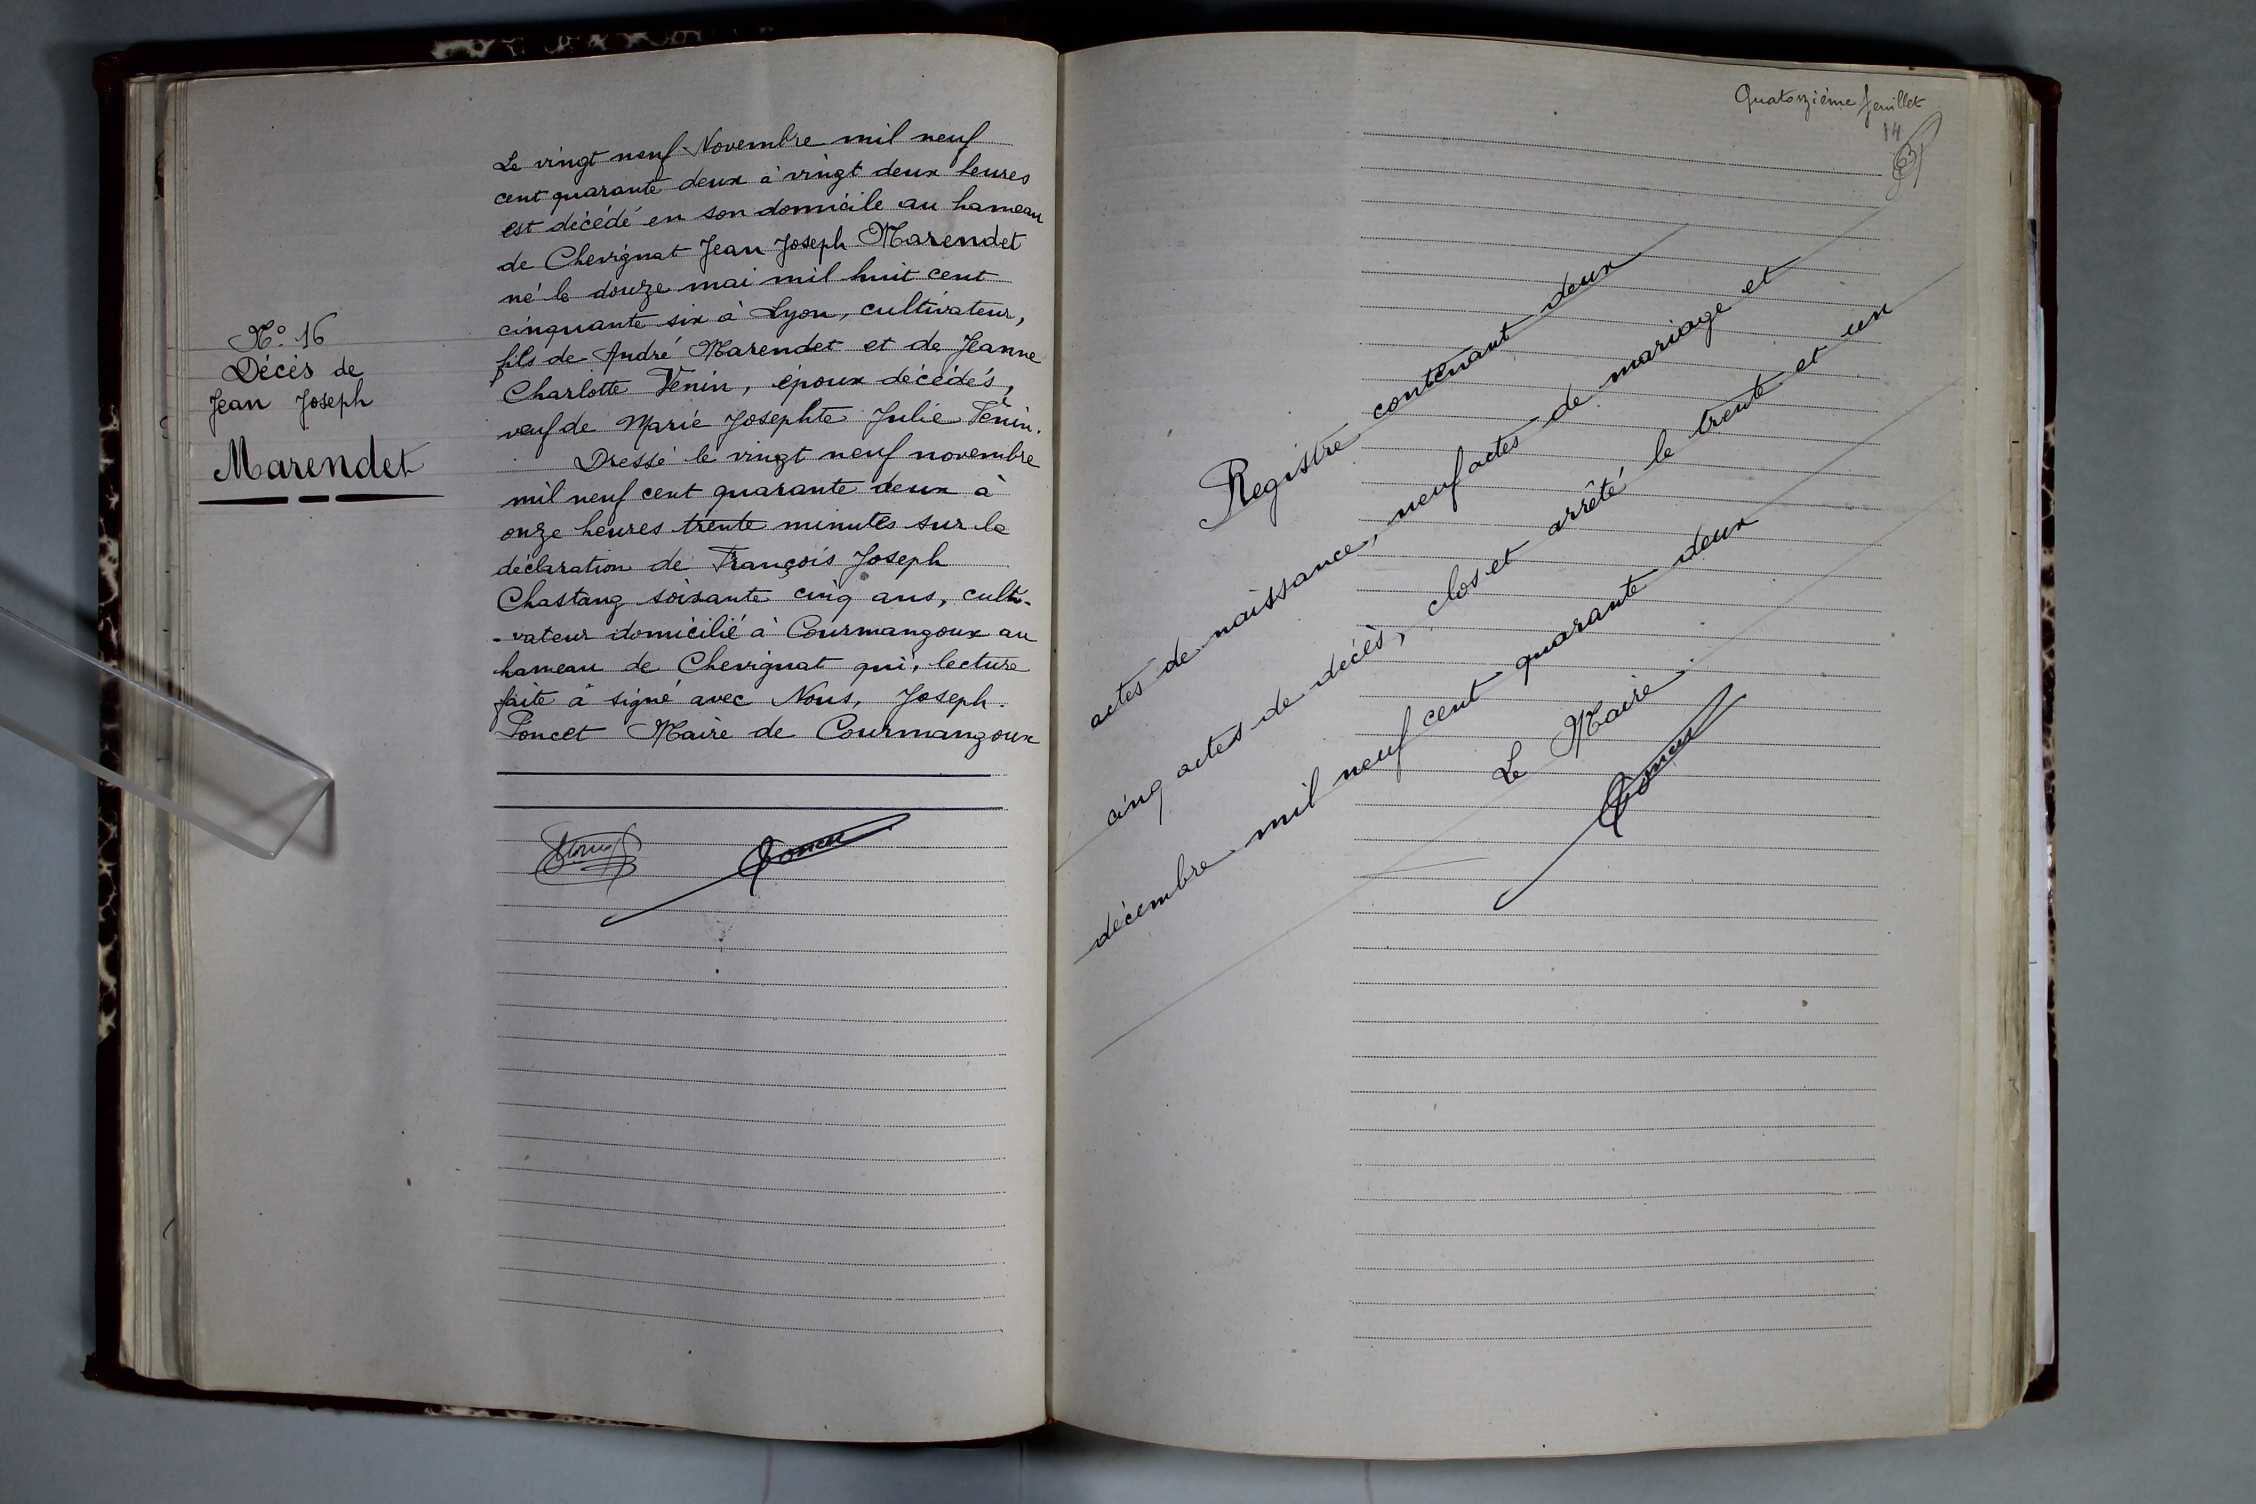 N° 16
Décès de
Jean Joseph
Marendet
Le vingt neuf Novembre mil neuf
cent quarante deux à vingt deux heures
est décédé en son domicile au hameau
de Chevignat Jean Joseph Marendet
né le douze mai mil huit cent
cinquante six à Lyon, cultivateur,
fils de André Marendet et de Jeanne
Charlotte Venin, époux décédés,
veuf de Marie Josephte Julie Venin.
Dressé le vingt neuf novembre
mil neuf cent quarante deux à
onze heures trente minutes sur la
déclaration de François Joseph
Chastang soixante cinq ans, culti-
-vateur domicilié à Courmangoux au
hameau de Chevignat qui, lecture
faite a signé avec Nous, Joseph
Poncet Maire de Courmangoux
Poncet
Quatorzième feuillet
14
Registre contenant deux
actes de naissance, neuf actes de mariage et
cinq actes de décès, clos et arrêté le trente et un
décembre mil neuf cent quarante deux
Le Maire
Poncet